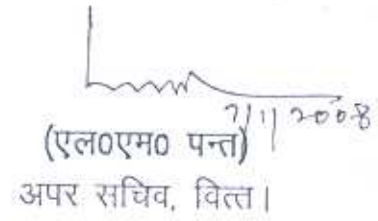 7/11/2008
(एल0एम0 पन्त)
अपर सचिव, वित्त।